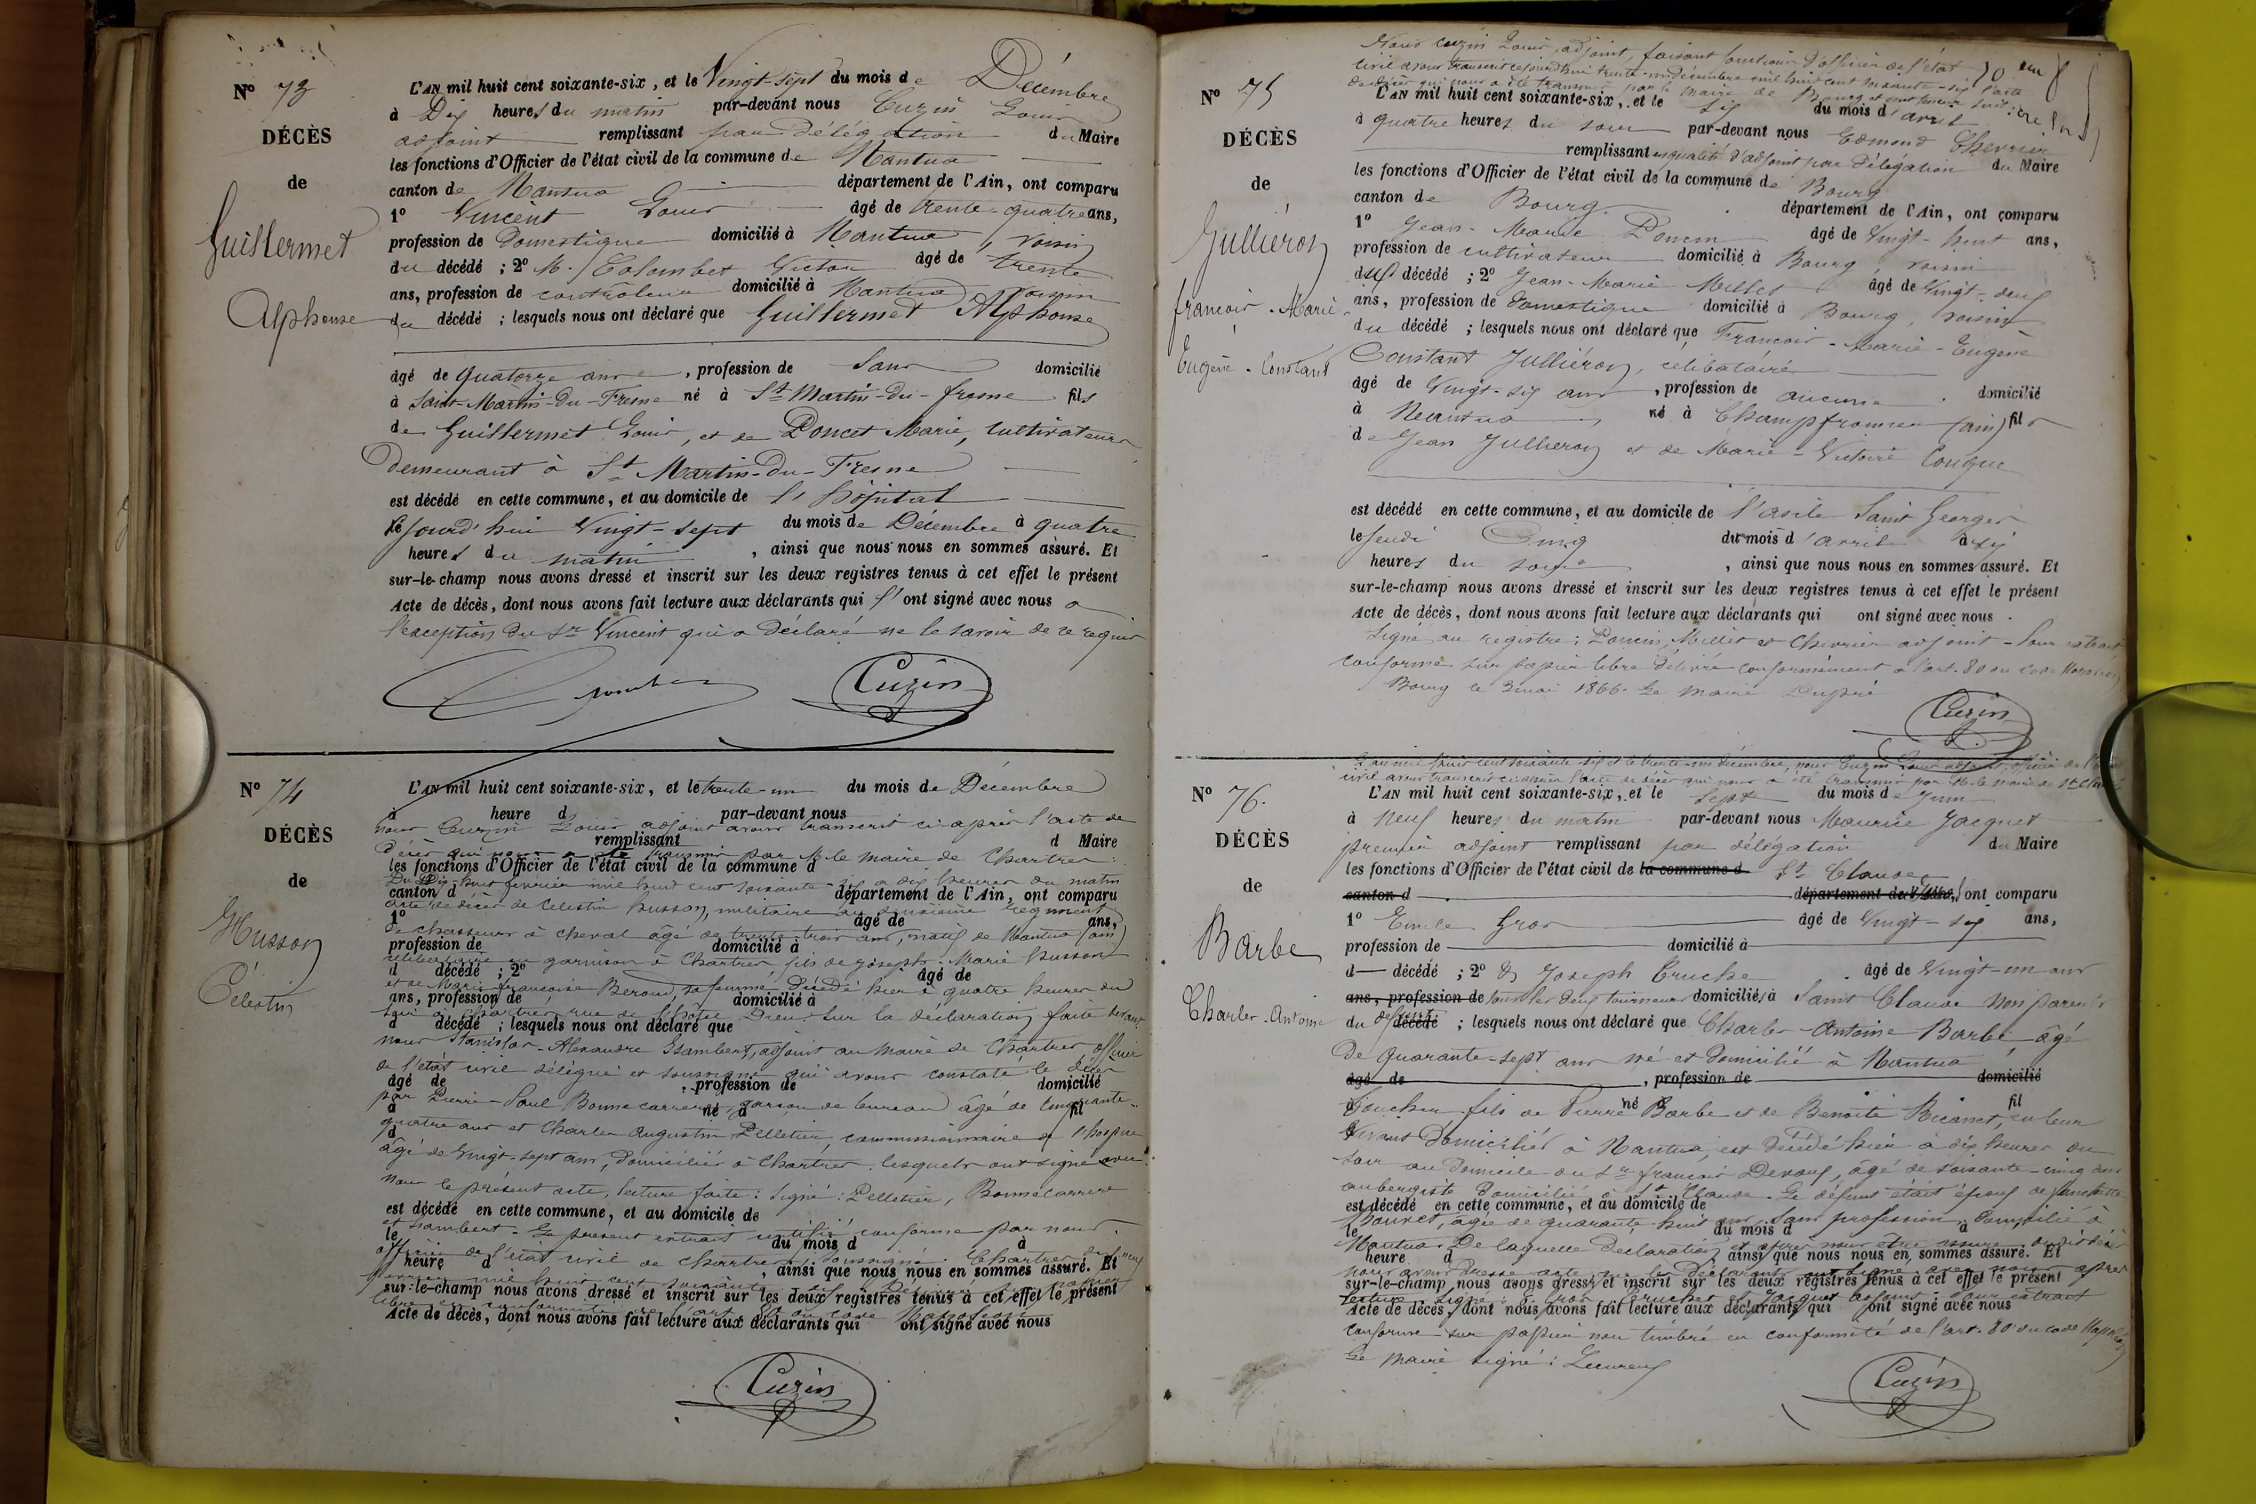 N° 73
DÉCÈS
de
Guillermet
Alphonse
L'AN mil huit cent soixante-six, et le Vingt-sept du mois de Décembre
à Dix heures du matin par-devant nous Cuzin Louis
adjoint remplissant par Délégation du Maire
les fonctions d'Officier de l'état civil de la commune de Nantua
canton de Nantua département de l'Ain, ont comparu
1° Vincent Louis âgé de trente-quatre ans,
profession de Domestique domicilié à Nantua, voisin
du décédé ; 2° M. Colombet Victor âgé de trente
ans, profession de contrôleur domicilié à Nantua voisin
du décédé ; lesquels nous ont déclaré que Guillermet Alphonse
âgé de quatorze ans, profession de Sans domicilié
à Saint-Martin-du-Fresne né à St Martin-du-fresne fils
de Guillermet Louis, et de Poncet Marie, cultivateurs
demeurant à St Martin-du-Fresne
est décédé en cette commune, et au domicile de l'hôpital
le jourd'hui Vingt-sept du mois de Décembre à quatre
heures du matin, ainsi que nous nous en sommes assuré. Et
sur-le-champ nous avons dressé et inscrit sur les deux registres tenus à cet effet le présent
Acte de décès, dont nous avons fait lecture aux déclarants qui l'ont signé avec nous a
l'exception du Sr Vincent qui a déclaré ne le savoir de ce requis
Cuzin
N° 74
DÉCÈS
de
Husson
Célestin
L'AN mil huit cent soixante-six, et le trente-un du mois de Décembre
à heure d par-devant nous
nous Cuzin Louis adjoint avons transcrit ci-après l'acte de
remplissant d Maire
décès qui nous a été transmis par M. le maire de Chartres:
les fonctions d'Officier de l'état civil de la commune d
Du Dix-huit février mil huit cent soixante-six à dix heures du matin
canton d département de l'Ain, ont comparu
acte de décès de Celestin husson, militaire au deuxième Régiment
1° âgé de ans,
de chasseurs à cheval âgé de trente-trois ans, natif de Nantua (ain)
profession de domicilié à
célibataire en garnison à Chartres, fils de Joseph-Marie husson
d décédé ; 2° âgé de
et de Marie-françoise Beroud, sa femme. Décédé hier à quatre heures du
ans, profession de domicilié à
soir à Chartres, rue de l'hôtel Dieu. Sur la déclaration faite devant
d décédé ; lesquels nous ont déclaré que
nous Stanislas-Alexandre Isambert, adjoint au maire de Chartres officier
de l'état civil délégué et soussigné qui avons constaté le décès
âgé de , profession de domicilié
par Pierre-Paul Bonnecarrere, garçon de bureau âgé de cinquante-
à né à fil
quatre ans et Charles Augustin Pelletier, commissionnaire
d
âgé de Vingt-sept ans, domiciliés à Chartres, lesquels ont signé avec
nous le présent acte, lecture faite: Signé: Pelletier, Bonnecarrere
est décédé en cette commune, et au domicile de
et Isambert. Le présent extrait certifié conforme par nous
le du mois d à
officier de l'état civil de Chartres, soussigné. Chartres
heure d , ainsi que nous nous en sommes assuré. Et
sur-le-champ nous avons dressé et inscrit sur les deux registres tenus à cet effet le présent
Acte de décès, dont nous avons fait lecture aux déclarants qui ont signé avec nous
Cuzin
Nous cuzin Louis, adjoint, faisant fonctions d'officier de l'état
civil avons transcrit cejourd'hui trente-un décembre mil huit cent soixante-six l'acte
de décès qui nous a été transmis par le maire de Bourg
N° 75
DÉCÈS
de
Julliéron
francois-Marie
Eugène-Constant
L'AN mil huit cent soixante-six, et le six du mois d'avril
à quatre heures du soir par-devant nous Edmond Chevrier
remplissant en qualité d'adjoint par délégation du Maire
les fonctions d'Officier de l'état civil de la commune de Bourg
canton de Bourg département de l'Ain, ont comparu
1° Jean-Marie Poncin âgé de Vingt-huit ans,
profession de cultivateur domicilié à Bourg, voisin
du décédé ; 2° Jean-Marie Millet âgé de Vingt-deux
ans, profession de Domestique domicilié à Bourg, voisin
du décédé ; lesquels nous ont déclaré que Francois-Marie-Eugène
Constant Julliéron, célibataire
âgé de Vingt-six ans, profession de aucune domicilié
à Nantua né à Champfromier (ain) fils
de Jean Julliéron et de Marie-Victoire
est décédé en cette commune, et au domicile de l'asile Saint Georges
le Jeudi Cinq du mois d'avril à six
heures du soir, ainsi que nous nous en sommes assuré. Et
sur-le-champ nous avons dressé et inscrit sur les deux registres tenus à cet effet le présent
Acte de décès, dont nous avons fait lecture aux déclarants qui ont signé avec nous.
Signé au registre: Poncin, Millet et Chevrier adjoint - Pour extrait
conforme sur papier libre délivré conformément à l'art. 80 du code Napoléon
Bourg le 3 mai 1866. Le Maire Dupré
Cuzin
L'an mil huit cent soixante-six et le trente-un décembre, nous Cuzin Louis adjoint, officier de l'état
civil avons transcrit ci-dessous l'acte de décès qui nous a été transmis par M. le maire de St Claude
N° 76.
DÉCÈS
de
Barbe
Charles-Antoine
L'AN mil huit cent soixante-six, et le Sept du mois de Juin
à Neuf heures du matin par-devant nous Maurice Jacquet
premier adjoint remplissant par délégation du Maire
les fonctions d'Officier de l'état civil de la commune d St Claude
canton d département de l'Ain, ont comparu
1° Emile Gros âgé de Vingt-six ans,
profession de domicilié à
d décédé ; 2° Joseph Cruchet âgé de Vingt-un ans
ans, profession de tous les deux tourneurs domiciliés à Saint Claude non parents
du défunt décédé ; lesquels nous ont déclaré que Charles-Antoine Barbe âgé
de quarante-sept ans né et domicilié à Nantua
âgé de , profession de domicilié
à né à fil
Boucher fils de Pierre Barbe et de Benoîte
vivant domiciliés à Nantua, est décédé hier à dix heures du
soir au domicile du Sr françois Devaux, âgé de soixante-cinq ans
aubergiste domicilié à St Claude. Le défunt était époux de
est décédé en cette commune, et au domicile de
âgée de quarante-huit ans, Sans profession, domiciliée à
le du mois d à
Nantua. De laquelle déclaration et après nous être assuré dudit décès
heure d ainsi que nous nous en sommes assuré. Et
nous avons dressé acte que les Déclarants ont signé avec nous après
sur-le-champ nous avons dressé et inscrit sur les deux registres tenus à cet effet le présent
lecture. Signé: E. Gros, Cruchet et Jacquet adjoint. Pour extrait
Acte de décès, dont nous avons fait lecture aux déclarants qui ont signé avec nous
conforme sur papier non timbré en conformité de l'art. 80 du code Napoléon
Le maire signé:
Cuzin